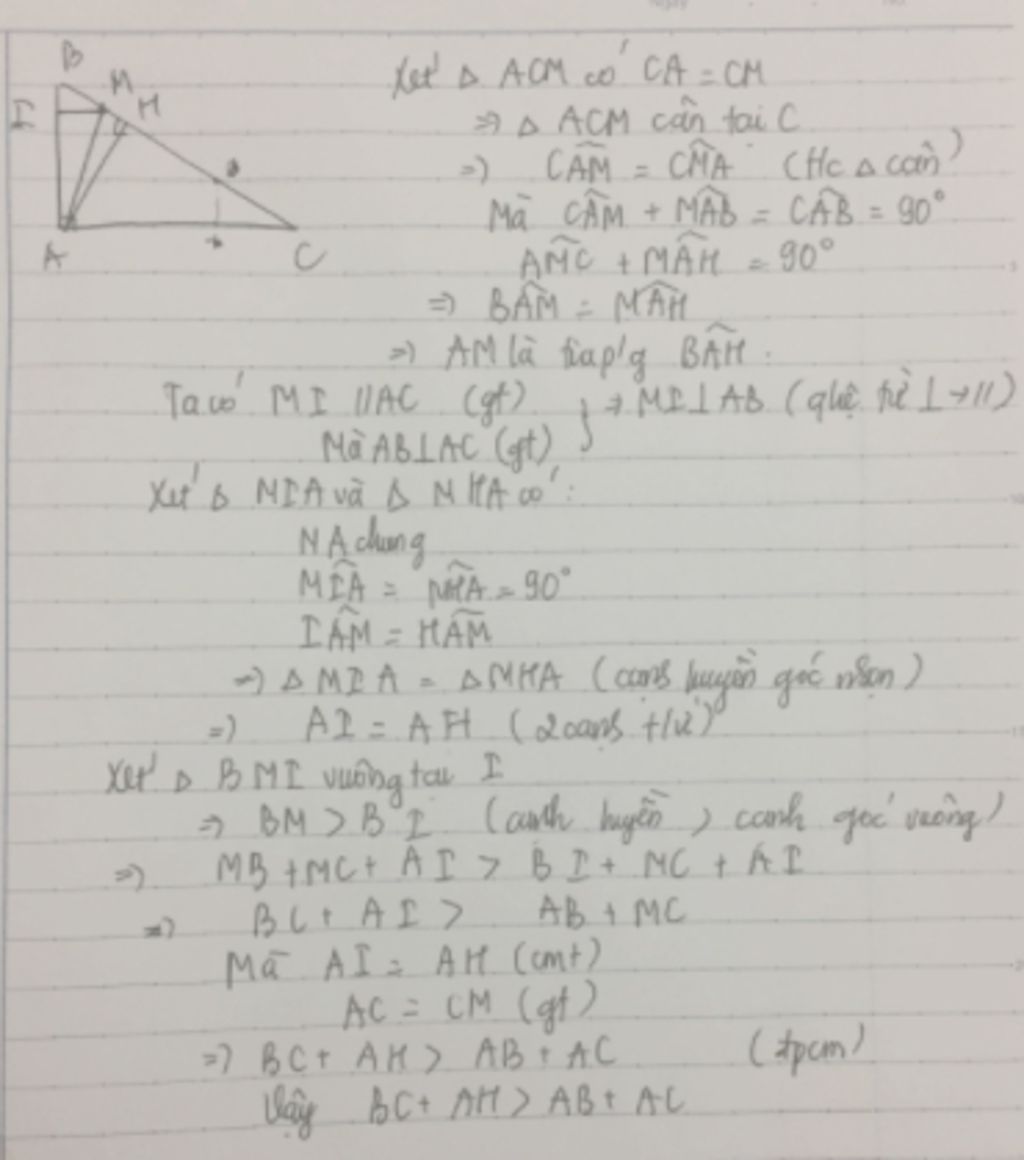 B
M
H
I
A
C
Xét Δ ACM có CA = CM
=> Δ ACM cân tại C
=> CÂM = CM̂A (t/c Δ cân)
Mà CÂM + MÂB = CÂB = 90°
AM̂C + MÂH = 90°
=> BÂM = MÂH
=> AM là tia p/g BÂH.
Ta có MI // AC (gt)
Mà AB⊥AC (gt)
} => MI⊥AB (qhệ từ ⊥ → //)
Xét Δ MIA và Δ MHA có:
MA chung
MÎA = MĤA = 90°
IÂM = HÂM
=> Δ MIA = Δ MHA (cạnh huyền góc nhọn)
=> AI = AH (2 cạnh t/ứ)
Xét Δ BMI vuông tại I
=> BM > BI (cạnh huyền > cạnh góc vuông)
=> MB + MC + AI > BI + MC + AI
=> BC + AI > AB + MC
Mà AI = AH (cmt)
AC = CM (gt)
=> BC + AH > AB + AC (đpcm)
Vậy BC + AH > AB + AC